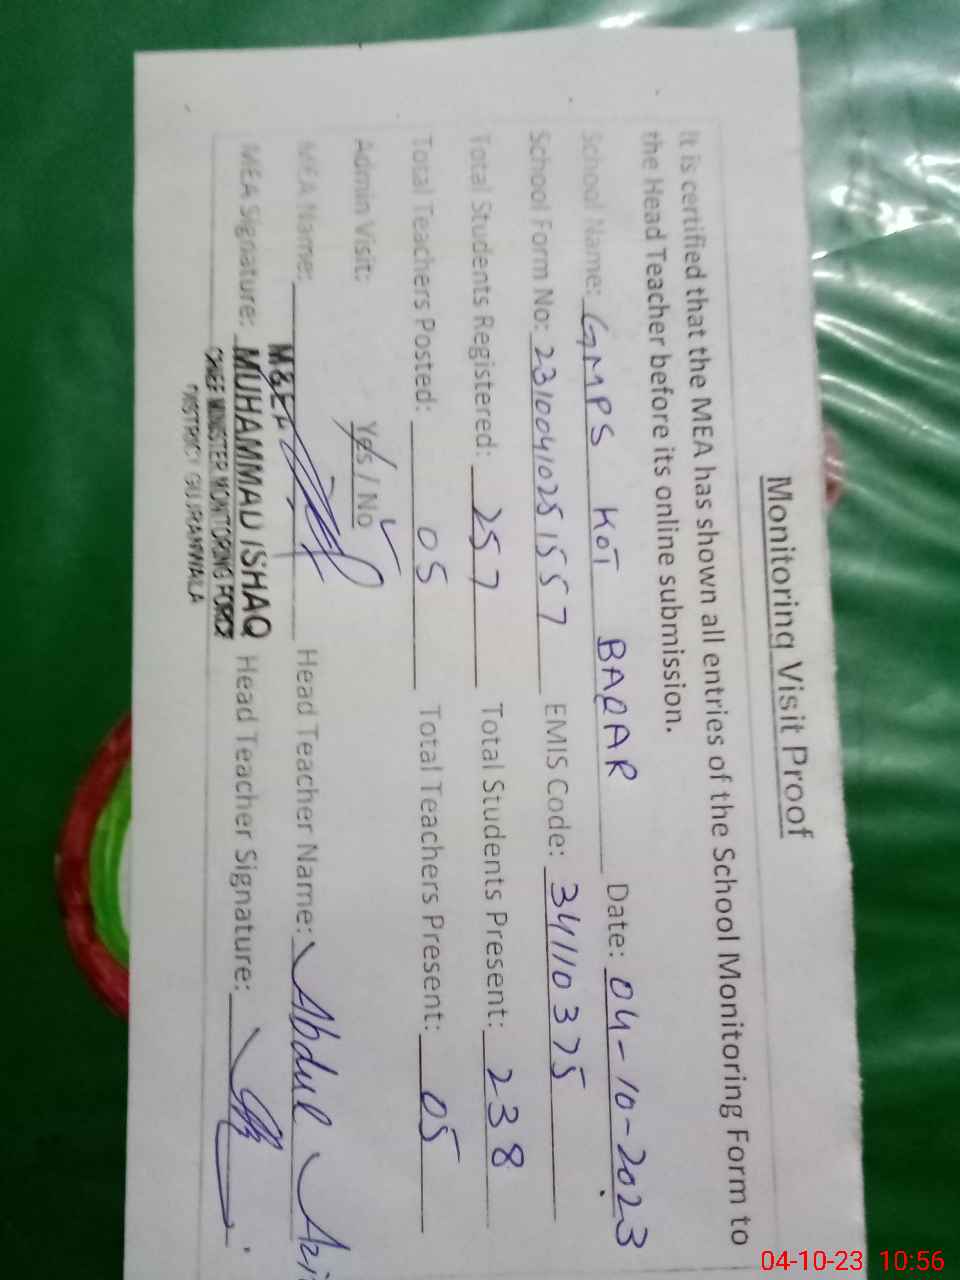 Monitoring Visit Proof
It is certified that the MEA has shown all entries of the School Monitoring Form to
the Head Teacher before its online submission.
School Name: GMPS KOT BAQAR Date: 04-10-2023
School Form No: 23100410251557 EMIS Code: 34110375
Total Students Registered: 257 Total Students Present: 238
Total Teachers Posted: 05 Total Teachers Present: 05
Admin Visit: Yes / No
MEA Name: Head Teacher Name: Abdul
M&EA
MEA Signature: MUHAMMAD ISHAQ Head Teacher Signature:
CHIEF MINISTER MONITORING FORCE
DISTRICT GUJRANWALA
04-10-23 10:56